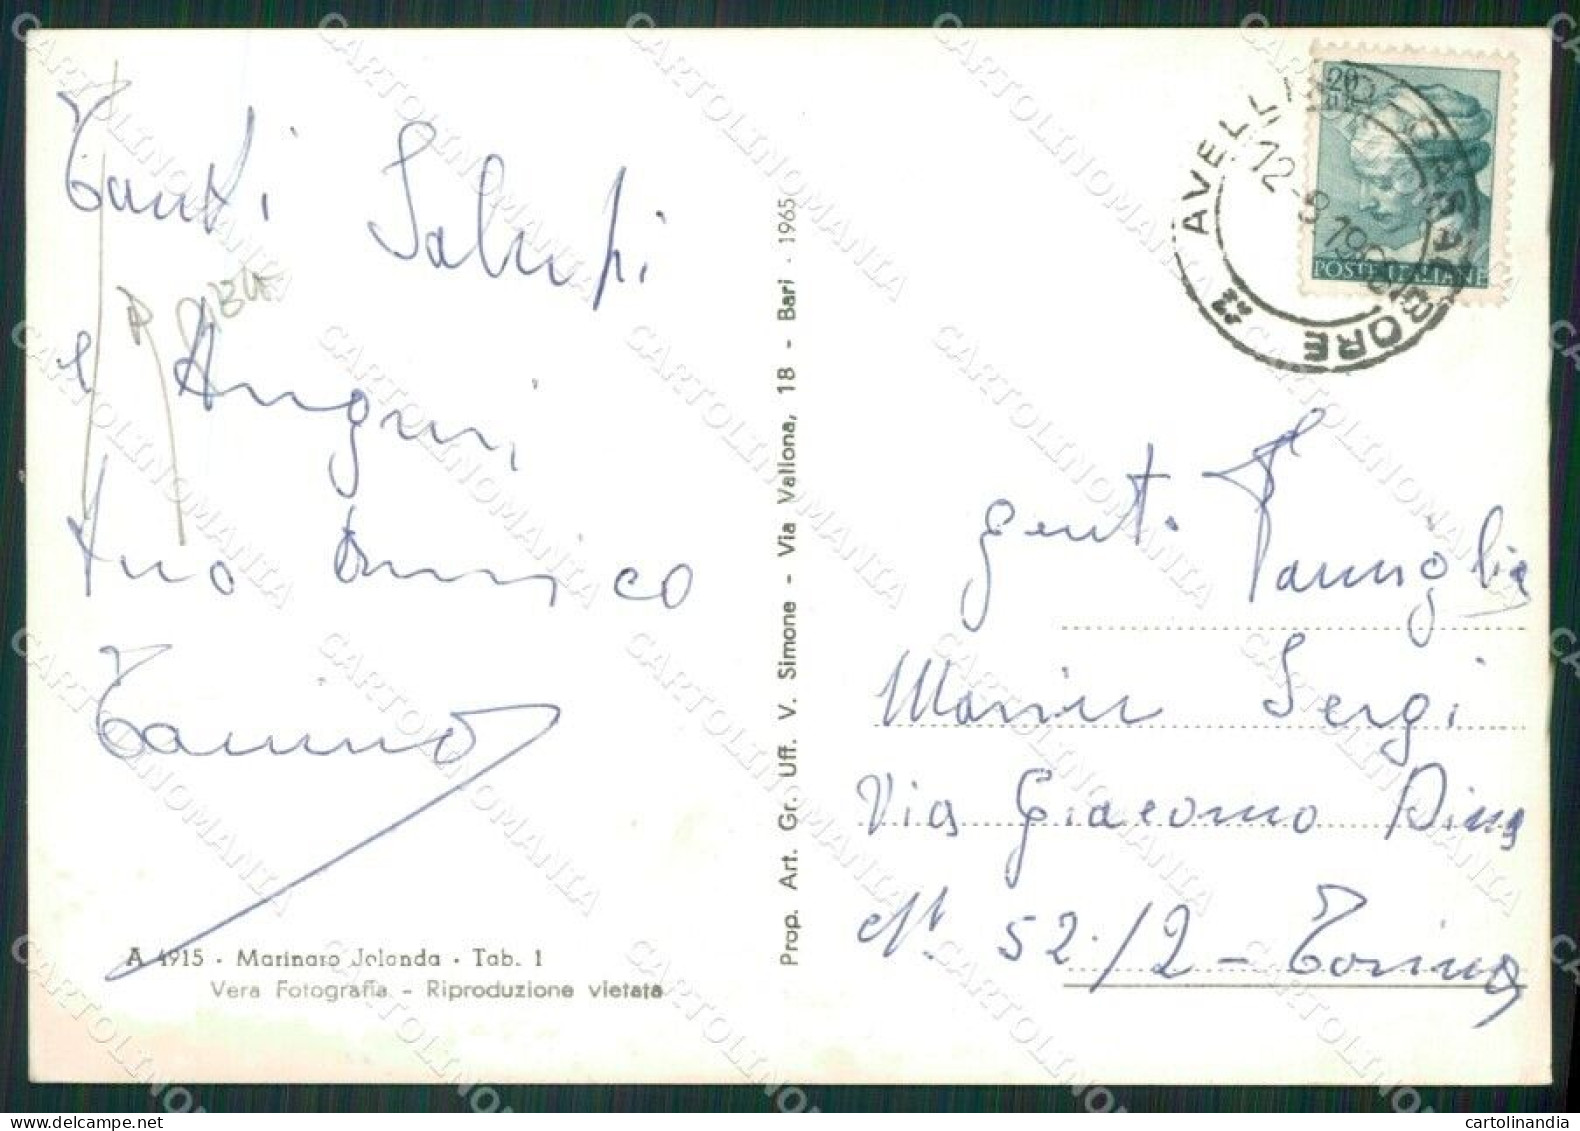 Tanti Saluti
e Auguri,
tuo Amico
Tanino
A 4915 - Marinaro Jolanda - Tab. 1
Vera Fotografia - Riproduzione vietata
Prop. Art. Gr. Uff. V. Simone - Via Vallona, 18 - Bari - 1965
20
POSTE ITALIANE
AVELLINO
12-8-19
gent. Famiglia
Sergi
Via Giacomo Dina
N. 52/2 - Torino
CARTOLINOMANIA
cartolinandia